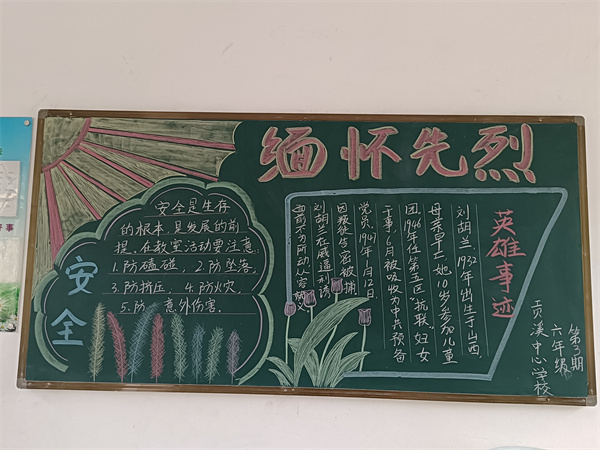 缅怀先烈
安全
安全是生存
的根本,是发展的前
提。在教室活动要注意:
1.防磕碰,2.防坠落,
3.防挤压,4.防火灾,
5.防 意外伤害.
英雄事迹
刘胡兰,1932年出生于山西
母亲早亡,她10岁参加儿童
团,1946年任第五区“抗联”妇女
干事,6月被吸收为中共预备
党员,1947年1月12日,
因叛徒告密被捕
刘胡兰在威逼利诱
面前不为所动从容就义
第3期
六年级
贡溪中心学校